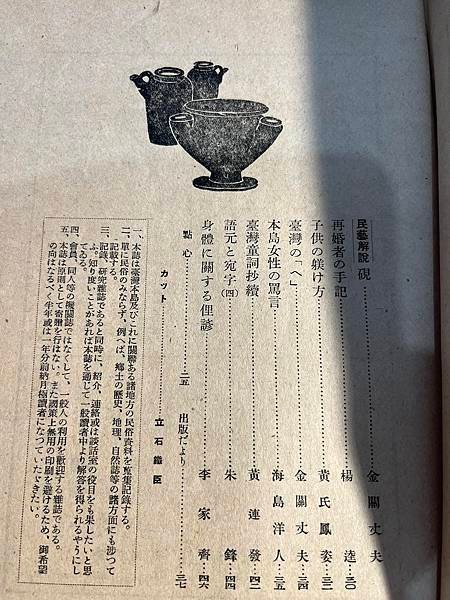 民藝解說 硯……金關丈夫
再婚者の手記……楊逵…三〇
子供の躾け方……黃氏鳳姿…三二
臺灣の「へ」……金關丈夫…三四
本島女性の罵言……海島洋人…三五
臺灣童詞抄續……黃連發…四二
語元と宛字(四)……朱鋒…四四
身體に關する俚諺……李家齊…四六
點心……二五 出版だより……三七
カット 立石鐵臣
一、本誌は臺灣本島及びこれに關聯ある諸地方の民俗資料を蒐集記錄する。
二、單に民俗のみならず、例へば、鄉土の歷史、地理、自然誌等の諸方面にも涉つて
記載する。
三、記錄、研究雜誌であると同時に、紹介、連絡或は談話室の役目をも果したいと思
ふ。知り度いことがあれば本誌を通じて一般讀者中より解答を得られるやうにし
てゐる。
四、會員、同人等の機關誌ではなくして、一般人の利用を歡迎する雜誌である。
五、本誌は原則として寄贈を行はない。また國策上無用の印刷を避けるため、御希望
の向はなるべく半年或は一年分前納月極讀者になつていたゞきたい。